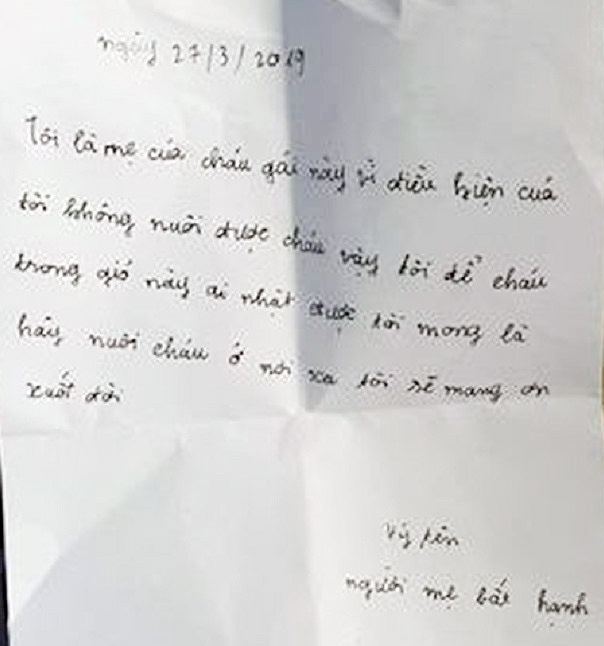 ngày 27/3/2019
Tôi là mẹ của cháu gái này vì điều kiện của
tôi không nuôi được cháu vậy tôi để cháu
trong giỏ này ai nhặt được tôi mong là
hãy nuôi cháu ở nơi xa tôi sẽ mang ơn
xuốt đời
ký tên
người mẹ bất hạnh